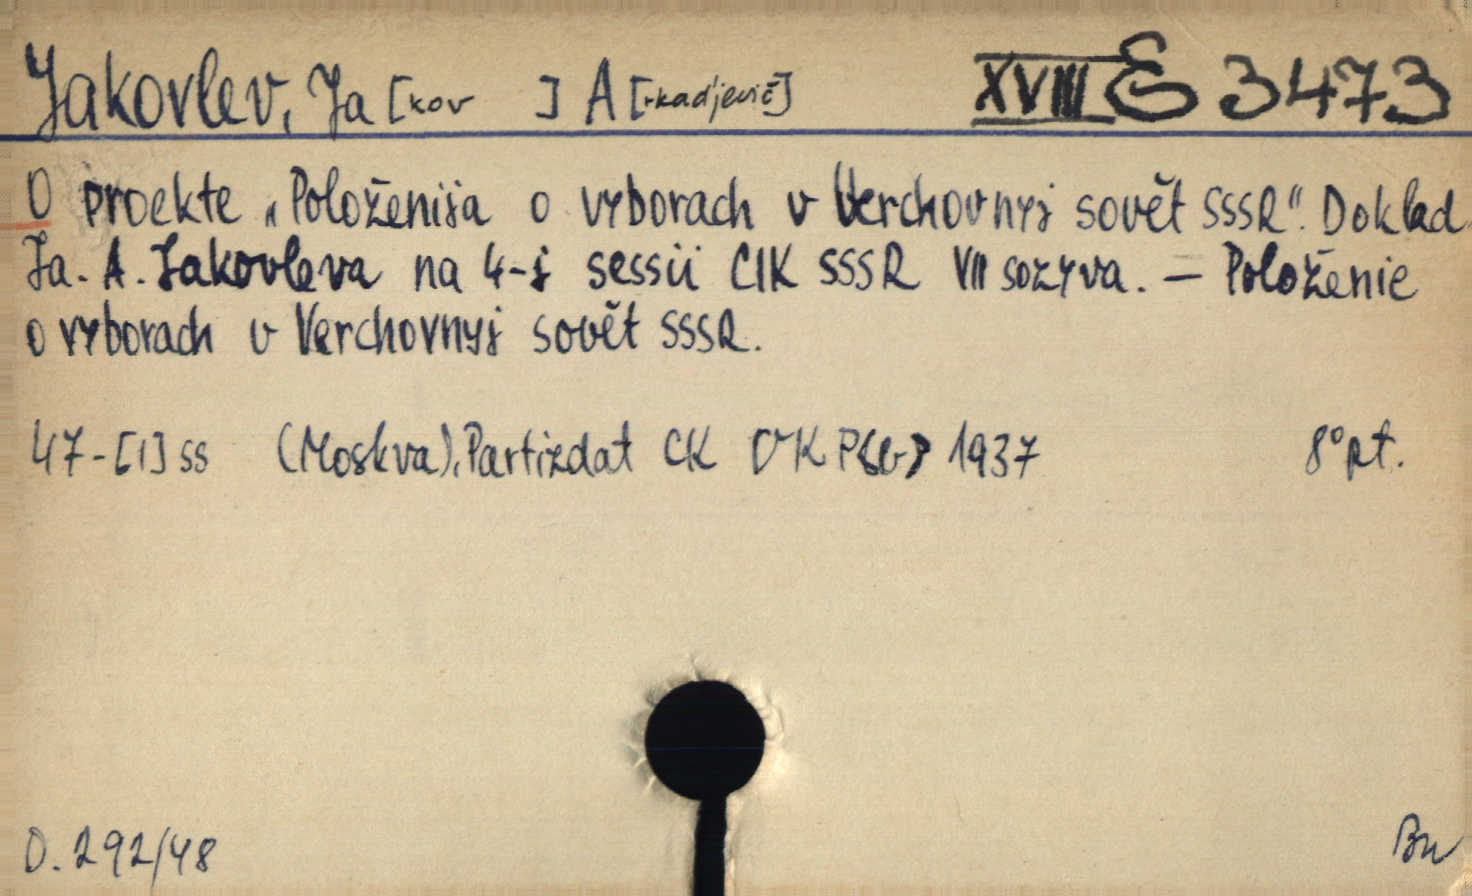 Jakovlev, Ja[kov ] A[rkadjevič] XVIII E 3473
O proekte „Položenija o vyborach v Verchovnyj sovět SSSR". Doklad
Ja. A. Jakovleva na 4-j sessii CIK SSSR VII sozyva. — Položenie
o vyborach v Verchovnyj sovět SSSR.
47-[1] ss (Moskva), Partizdat CK VKP(b) 1937 8° rt.
D. 292/48 Bn